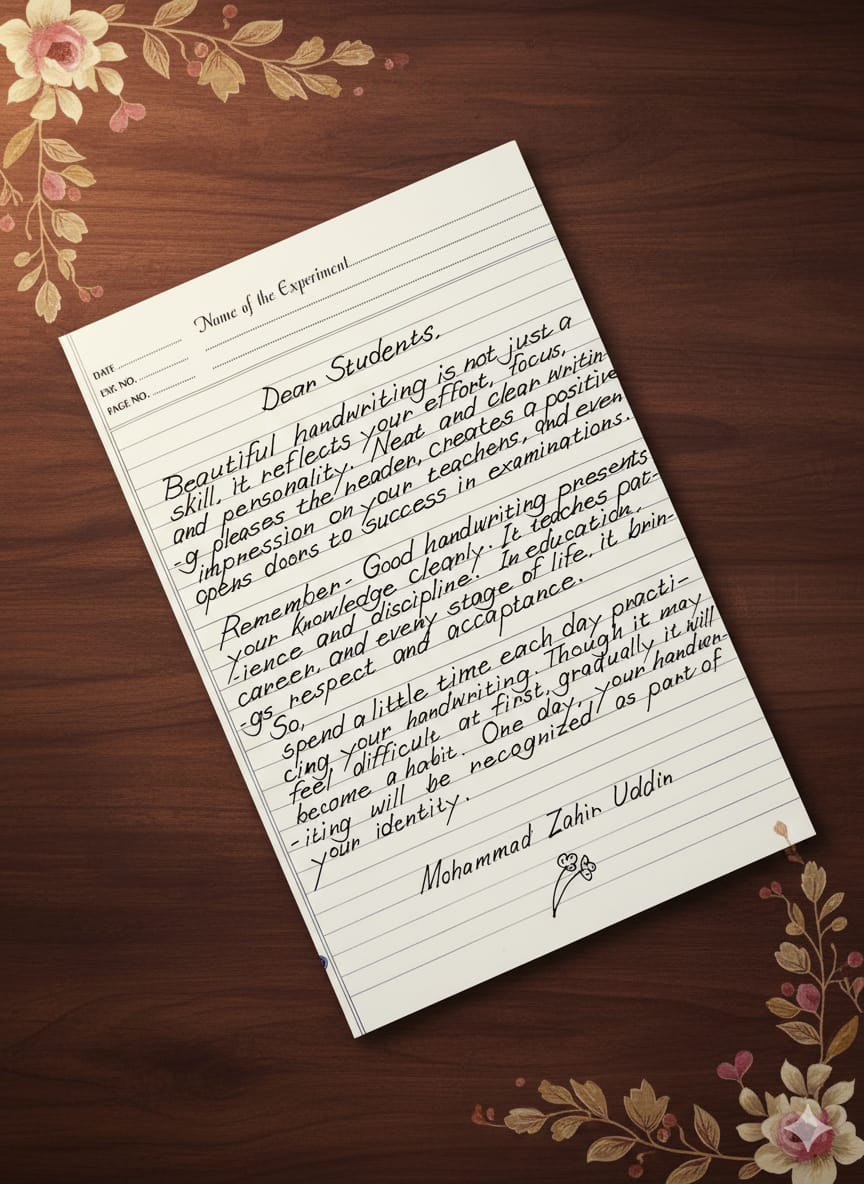 Name of the Experiment
DATE
EXP. NO.
PAGE NO.
Dear Students,
Beautiful handwriting is not just a
skill, it reflects your effort, focus,
and personality. Neat and clear writin-
-g pleases the reader, creates a positive
impression on your teachers, and even
opens doors to success in examinations.
Remember- Good handwriting presents
your knowledge cleanly. It teaches pat-
-ience and discipline. In education,
career, and every stage of life, it brin-
-gs respect and accaptance.
So,
spend a little time each day practi-
cing your handwriting. Though it may
feel difficult at first, gradually it will
become a habit. One day, your handwr-
-iting will be recognized as part of
your identity.
Mohammad Zahir Uddin